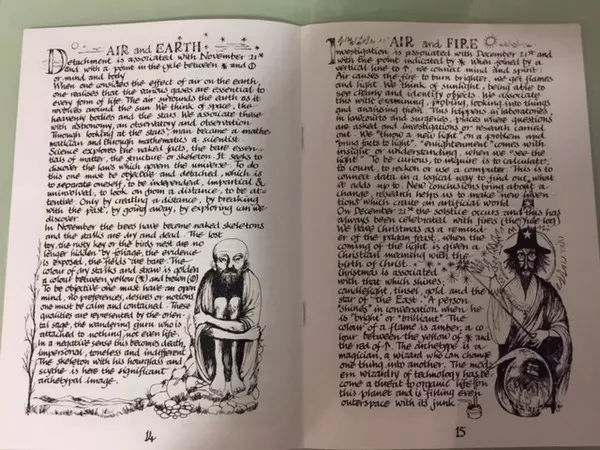 AIR and EARTH
Detachment is associated with November 21st
and with a point in the cycle between and
or mind and body
When one considers the effect of air on the earth,
one realises that the various gases are essential to
every form of life. The air surrounds the earth as it
revolves around the sun. We think of space, the
heavenly bodies and the stars. We associate these
with astronomy, an observatory and observation.
Through looking at the stars, man became a mathe-
matician and through mathematics a scientist.
Science explores the naked facts, the bare essen-
tials of matter, the structure or skeleton. It seeks to
discover the laws which govern the universe. To do
this one must be objective and detached, which is
to separate oneself, to be independent, impartial &
uninvolved, to look on from a distance, to be at-
tentive. Only by creating a distance, by breaking
with the past, by going away, by exploring can we
discover.
In November the trees have become naked skeletons
and the stalks are dry and dead. The lost
toy, the rusty key or the birds nest are no
longer hidden by foliage, the evidence
is exposed, the fields are bare. The
colour of dry stalks and straw is golden
a colour between yellow and brown
To be objective one must have an open
mind, no preferences, desires or motives
one must be calm and contained. These
qualities are represented by the orien-
tal sage, the wandering guru who is
attached to nothing, not even life.
In a negative sense this becomes death,
impersonal, toneless and indifferent
The skeleton with his hourglass and
scythe is here the significant
archetypal image.
14
AIR and FIRE
Investigation is associated with December 21st and
with the point indicated by When joined by a
vertical line to we connect mind and spirit.
Air causes the fire to burn brighter, we get flames
and light. We think of sunlight, being able to
see clearly and identify objects. We associate
this with examining, probing, looking into things
and analysing them. This happens in laboratories,
in lawcourts and surgeries, places where questions
are asked and investigations or research carried
out. We "throw a new light" on a problem and
"bring facts to light". "enlightenment" comes with
insight or understanding, when we "see the
light". To be curious, to inquire is to calculate,
to count, to reckon or use a computer. This is to
connect data in a logical way to find out, what
it adds up to. New conclusions bring about a
change, research helps us to make new inven-
tions which create an artificial world.
On December 21st the solstice occurs and this has
always been celebrated with fires (the yule log)
We have Christmas as a remind-
er of the pagan feast, when the
coming of the light is given a
Christian meaning with the
birth of Christ.
Christmas is associated
with that which shines;
candlelight, tinsel, gold and the
star of the East. A person
"shines" in conversation when he
is "bright" or "brilliant". The
colour of a flame is amber, a co-
lour between the yellow of and
the red of The archetype is a
magician, a wizard who can change
one thing into another. The mod-
ern wizardry of technology has be-
come a threat to organic life on
this planet and is filling even
outerspace with its junk.
15